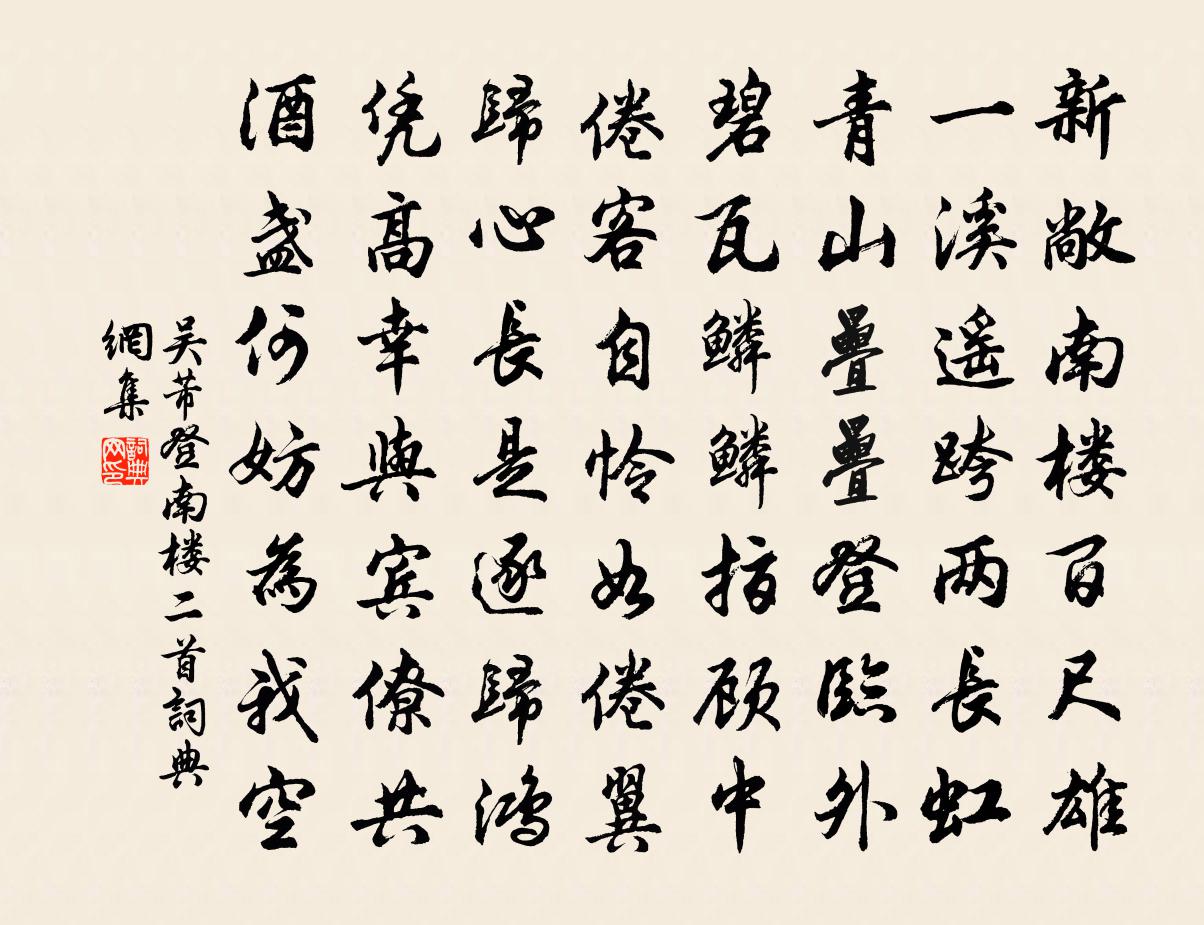 新敞南楼百尺雄
一溪遥跨两長虹
青山疊疊登臨外
碧瓦鱗鱗指顾中
倦客自怜如倦翼
歸心長是逐歸鴻
凭高幸與宾僚共
酒盏何妨為我空
吴芾登南楼二首詞典
網集
詞典
网印